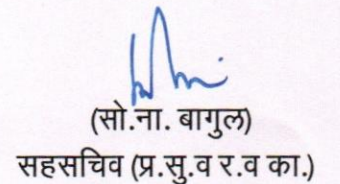 (सो.ना. बागुल)
सहसचिव (प्र.सु.व र.व का.)